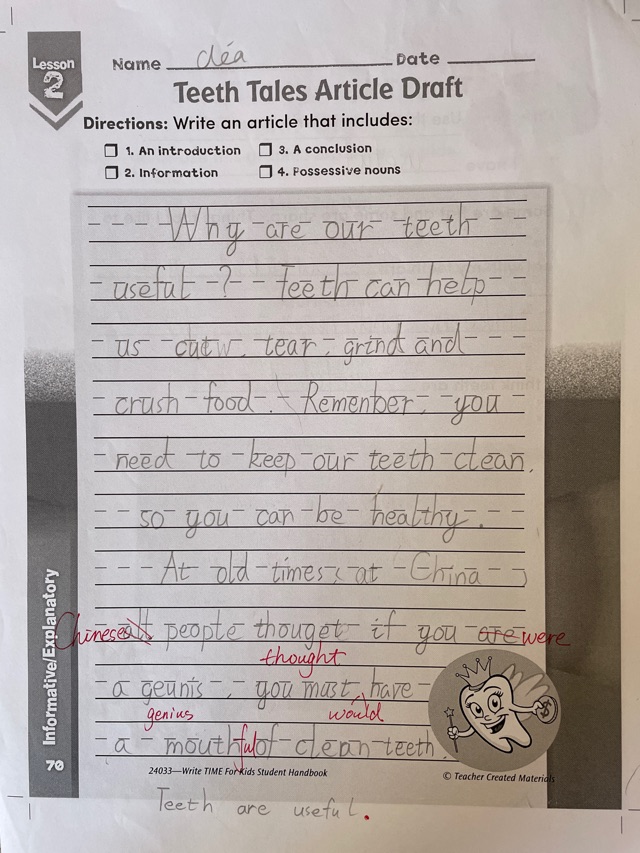 Lesson
2
Name Cléa Date
Teeth Tales Article Draft
Directions: Write an article that includes:
1. An introduction 3. A conclusion
2. Information 4. Possessive nouns
Why are our teeth
useful ? Teeth can help
us cut, tear, grind and
crush food. Remenber, you
need to keep our teeth clean,
so you can be healthy.
At old times, at China,
Chinese all people thouget if you are were
thought
a geunis, you must have
genius would
a mouthful of clean teeth.
Informative/Explanatory
70
24033—Write TIME For Kids Student Handbook © Teacher Created Materials
Teeth are useful.